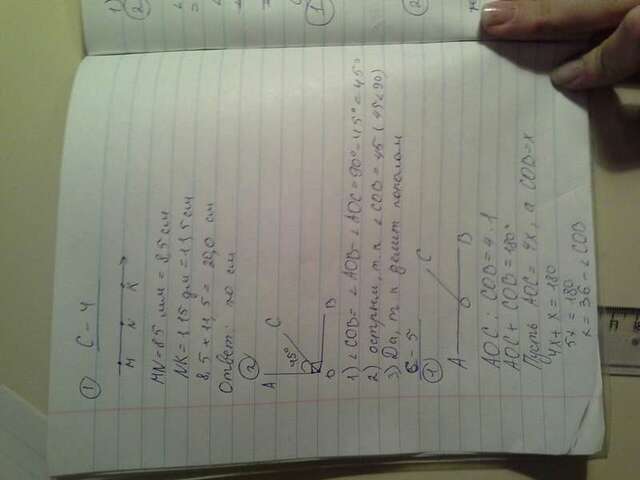 ① С-4
M N K
MN = 85 мм = 8,5 см
NK = 1,15 дм = 11,5 см
8,5 + 11,5 = 20,0 см
Ответ: 20 см
②
A C 45° O B
1) ∠COB = ∠AOB - ∠AOC = 90° - 45° = 45°
2) острым, т к ∠COB = 45 (45<90)
3) Да, т к делит пополам
С-5
①
A O B C
AOC : COB = 4 : 1
AOC + COB = 180°
Пусть AOC = 4x, а COB = x
4x + x = 180
5x = 180
x = 36 - ∠COB
1)
②
①
②